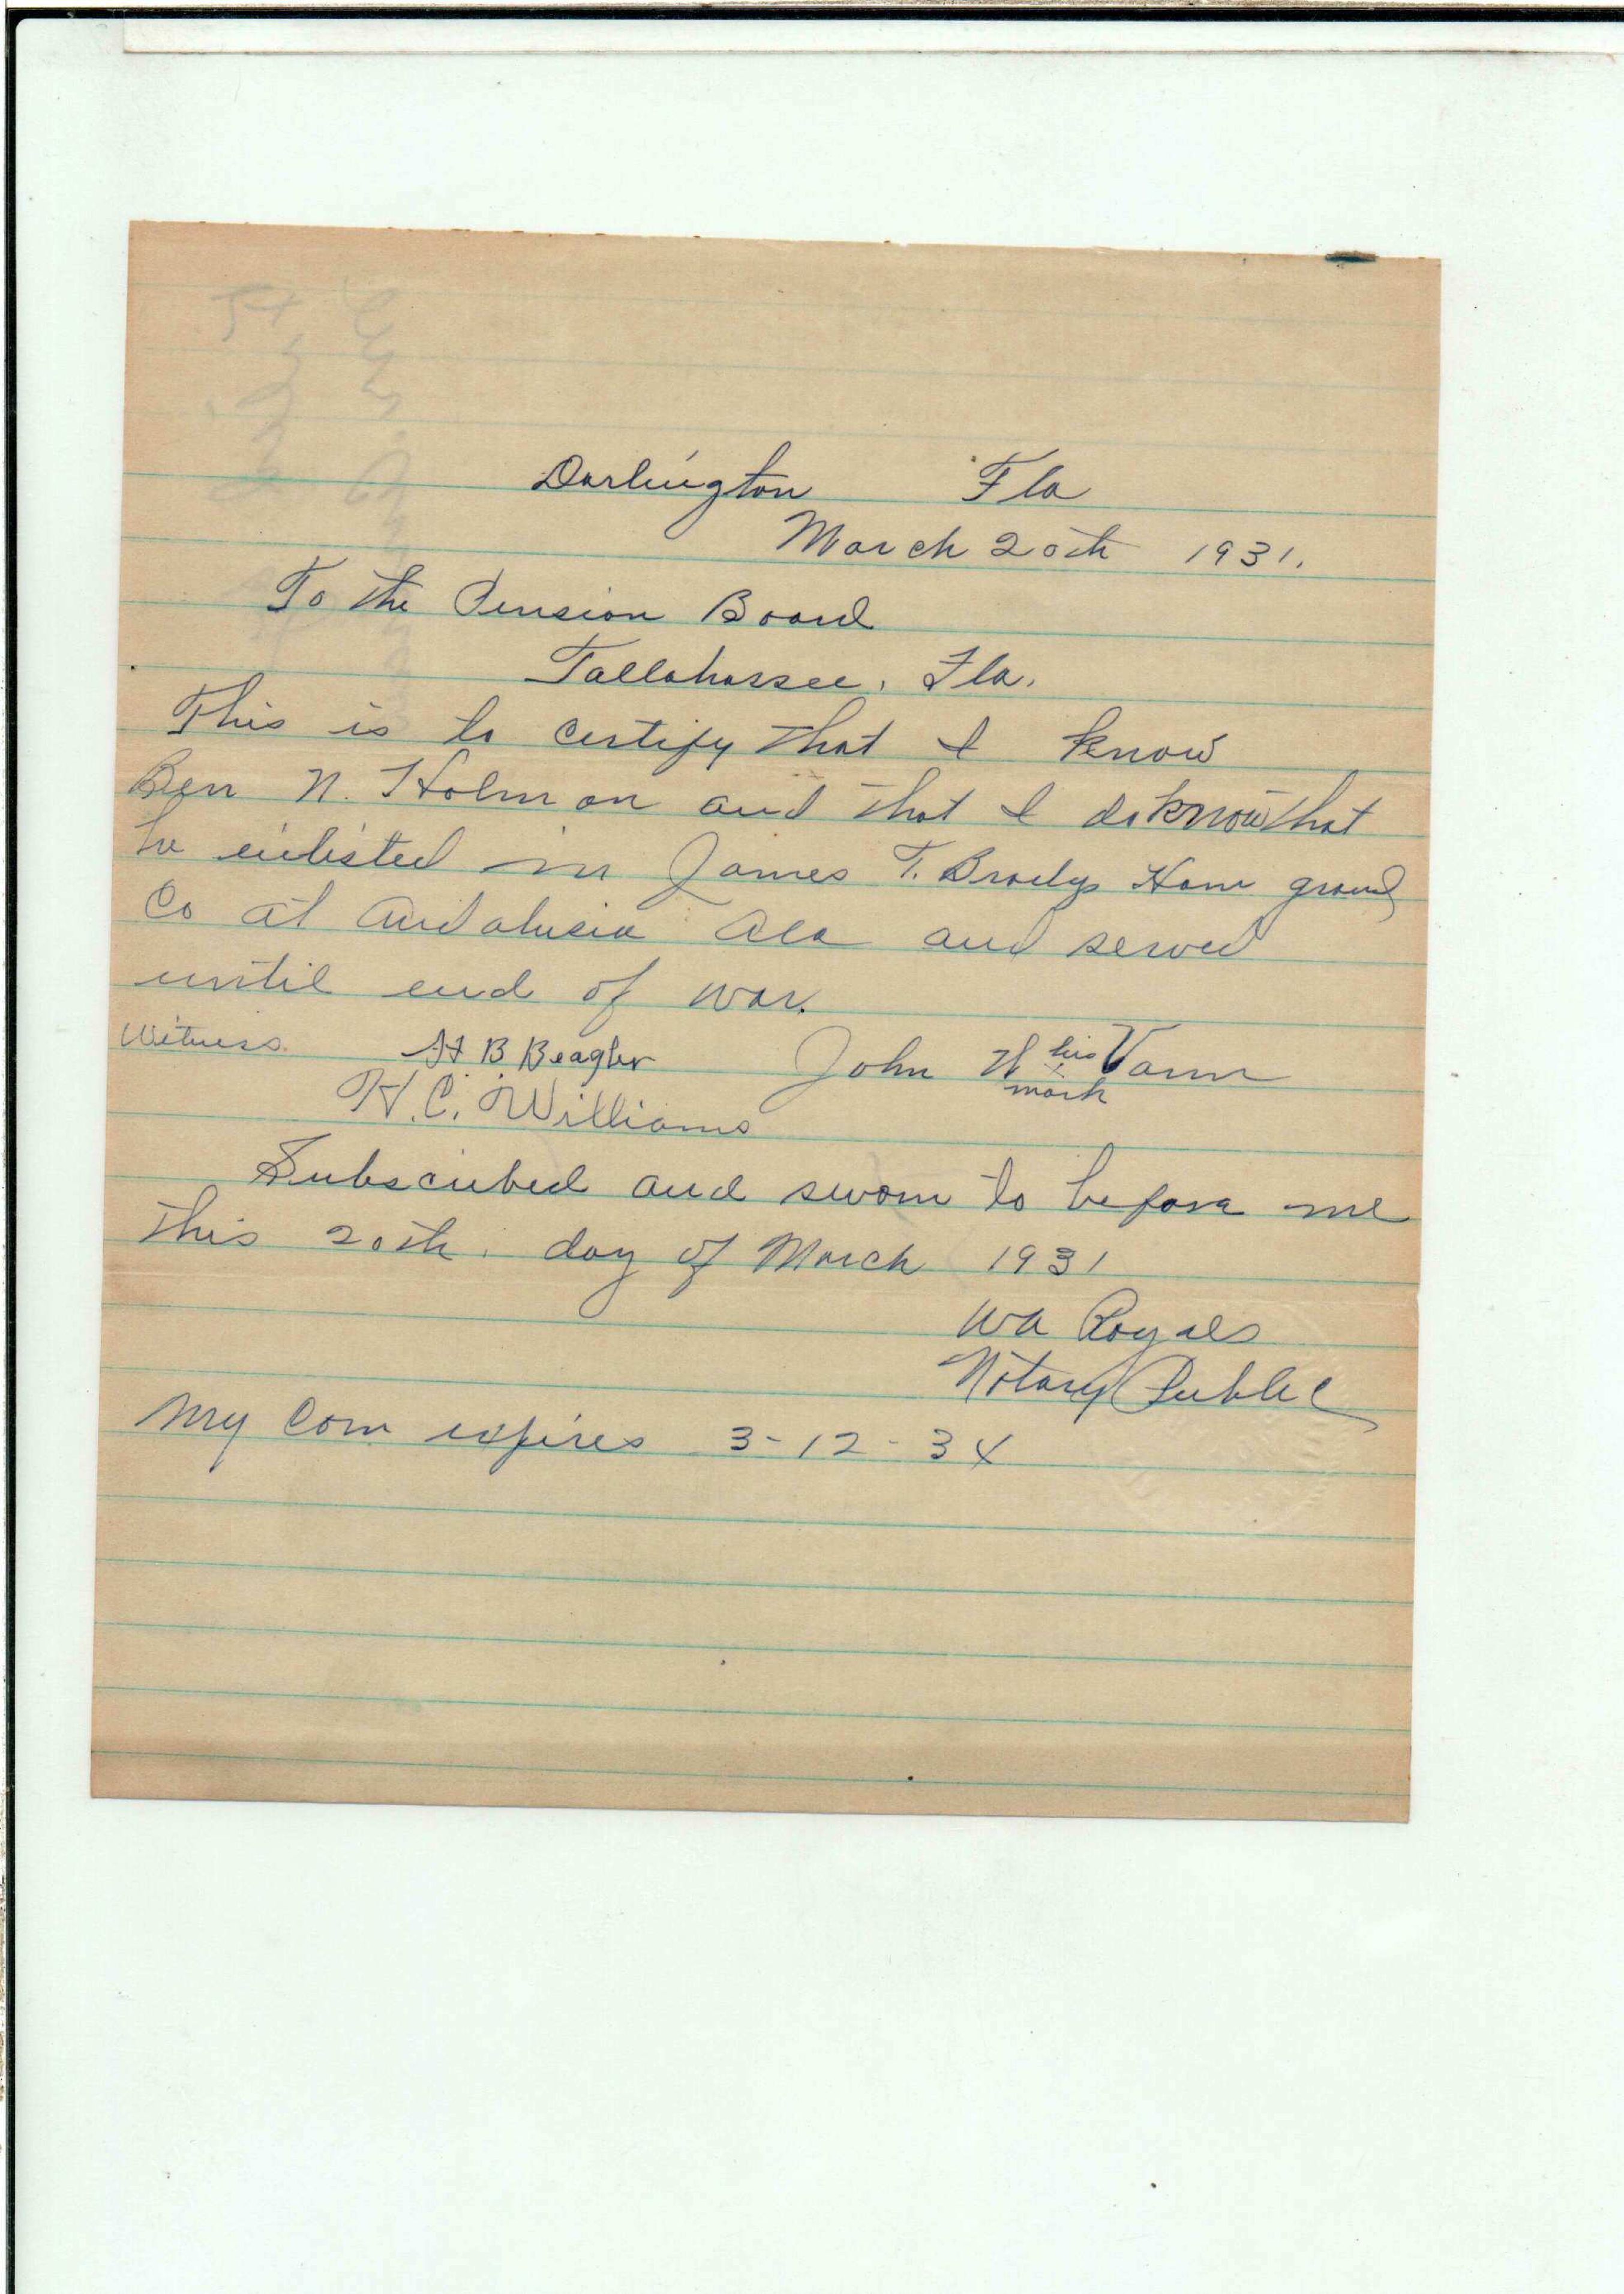 Darlington Fla
March 20th 1931.
To the Pension Board
Tallahassee, Fla.
This is to certify that I know
Ben N. Holman and that I do know that
he enlisted in James T. Bradys Home graud
Co at Andalusia Ala and served
until end of war.
Witness. H B Beagler John W his Vann
x
mark
H. C. Williams
Subscribed and sworn to before me
this 20th. day of March 1931
WA Royals
Notary Public
My Com expires 3-12-34